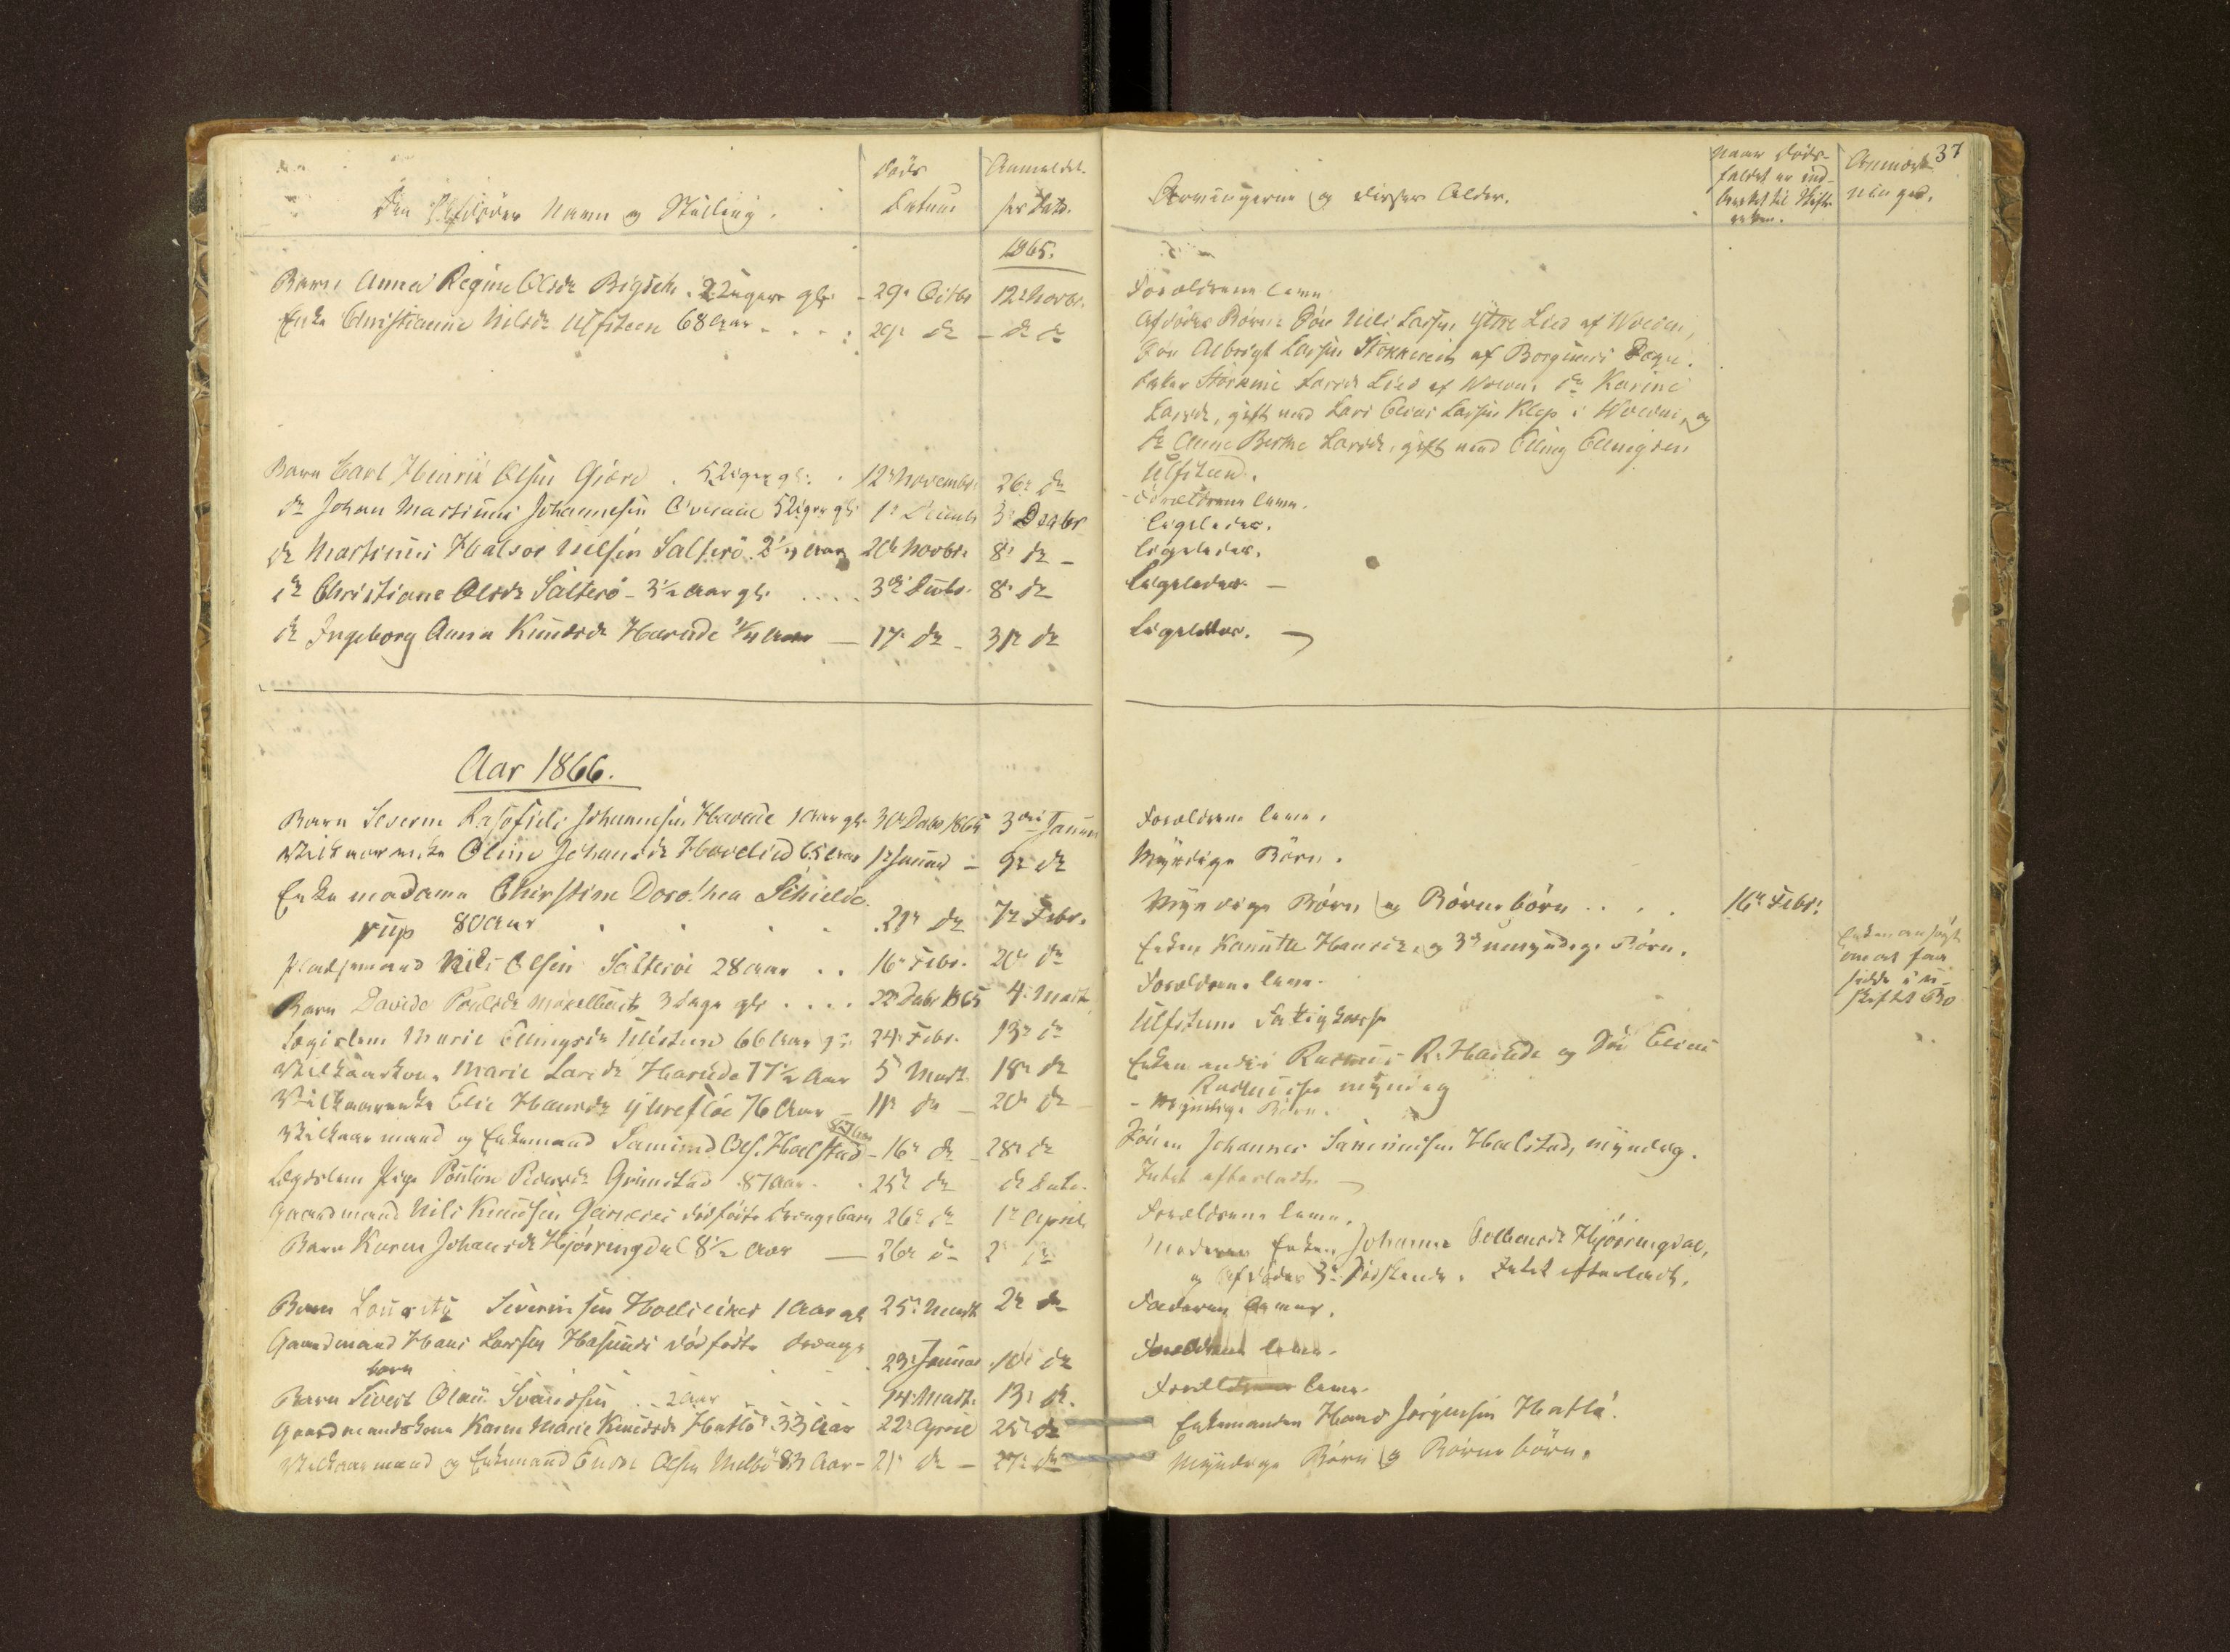 37
Den Afdödes Navn og Stilling.
Döds
Datum
Anmeldel.
ses Dato.
Arvingerne og disses Alder.
Naar Döds-
faldet er ind-
berettet til Skifte
retten.
Anmærk-
ninger.
1865.
Barn Anna Regine Olsdr 2 Uger gl. - 29 Octbr 12 Novbr. Forældrene leve
Enke Christianne Nilsdr Ulfsteen 68 Aar - 29 dr - dr dr Afdödes Börn: Sön Nils Larsen Ytre Lied af Volden,
Sön Albrigt Larsen Stokkereit af Borgunds Sogn.
Larsdr Lied af Volden, dr Karine
Larsdr, gift med Lars Elias Larsen Klep i Volden, og
dr Anne Berthe Larsdr, gift med Elling Ellingsen
Ulfsteen.
Barn Carl Henrik Olsen 5 Uger gl. 12 November 26 dr Forældrene leve.
dr Johan Martinus Johannesen 5 Uger gl 1 Decemb 3 Decbr ligeledes.
dr Martinus Halvor Nilsen Salterö 2 1/4 Aar 20 Novbr. 8 dr - ligeledes.
dr Christiane Olsdr Salterö - 3 1/2 Aar gl. 3 Decbr. 8 dr Ligeledes -
dr Ingeborg Anna Knudsdr Hareide 1/4 Aar - 17 dr - 31 dr Ligeledes.
Aar 1866.
Barn Severin Johannesen Hareide 1 Aar gl. 30 Decbr 1865 3 Januar Forældrene leve.
Vilkaarsenke Oline Johansdr Hovlid 65 Aar 1 Januar - 9 dr Myndige Börn.
Enkemadame Christine Dorothea Schielde-
rup 80 Aar 29 dr 7 Febr. Myndige Börn og Börnebörn . . . 16 Febr.
Pladsemand Nils Olsen Salteröe 28 Aar . . 16 Febr. 20 dr Enken Hansdr og 3 umyndige Börn. Enken ansögt
om at faa
sidde i u-
skiftet Bo
Barn Davide Poulsdr 3 Dage gl . . . . 22 Decbr 1865 4 Marts Forældrene leve.
Lægdslem Marie Ellingsdr Ulfsteen 66 Aar gl. 24 Febr. 13 dr Ulfsteens Fattigkasse
Vilkaarskone Marie Larsdr Hareide 77 1/2 Aar 5 Marts 18 dr Enkemand Rasmus R. Hareide og Sön Elias
Rasmussen myndig
Vilkaarsenke Elie Hansdr Yttreflöe 76 Aar - 11 dr - 20 dr - Myndige Börn.
Vilkaarsmand og Enkemand Samund Ols. Haelstad - 16 dr - 28 dr Sönnen Johannes Samundsen Haelstad, myndig.
Lægdslem Pige Pouline Pedersdr Grimstad 87 Aar . 25 dr dr Dato. Intet efterladt.
Gaardmand Nils Knudsen Garneses dödfödte Drengebarn 26 dr 1 April Forældrene leve.
Barn Karen Johansdr Hjörringdal 8 1/2 Aar - 26 dr 2 dr Moderen Enken Johanne Hjörringdal,
og Afdödes 3 Södskende. Intet efterladt.
Barn Severinsen 1 Aar gl 25 Marts 2 dr Faderen lever.
Gaardmand Hans Larsen Hasunds dödfödte Drenge-
barn 23 Januar 10 dr Forældrene leve.
Barn Sivert Olaus Svendsen . . 2 Aar 14 Marts 13 dr. Forældrene leve.
Gaardmandskone Karen Marie Knudsdr Hatlö 33 Aar 22 April 25 dr Enkemanden Hans Jörgensen Hatlö.
Vilkaarsmand og Enkemand Endre Olsen Melbö 83 Aar - 21 dr - 27 dr Myndige Börn og Börnebörn.